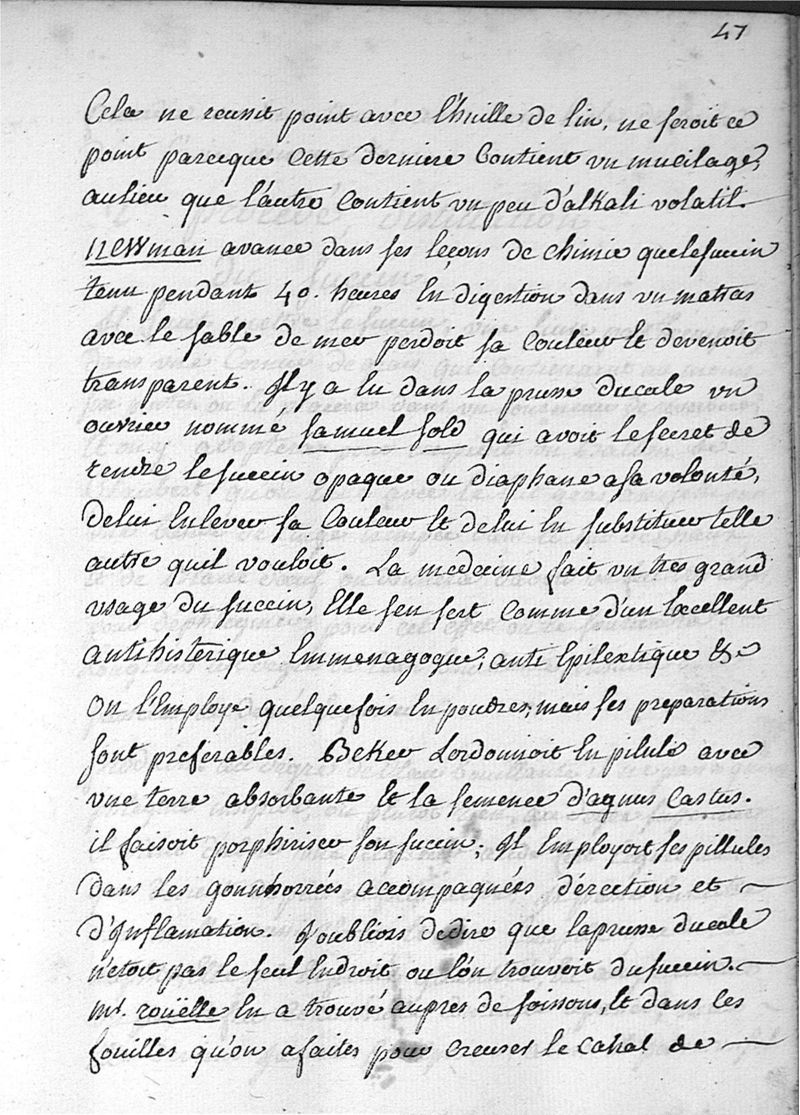 47
Cela ne reussit point avec l'huille de lin, ne seroit ce
point parceque cette derniere contient un mucilage,
aulieu que l'autre contient un peu d'alkali volatil.
newman avance dans ses leçons de chimie que le succin
tenu pendant 40. heures en digestion dans un matras
avec le sable de mer perdoit sa couleur et devenoit
transparent. Il y a eu dans la prusse ducale un
ouvrier nommé samuel sold qui avoit le secret de
rendre le succin opaque ou diaphane a sa volonté,
de lui enlever sa couleur et de lui en substituer telle
autre quil vouloit. La medecine fait un tres grand
usage du succin, Elle s'en sert comme d'un Excellent
antihisterique Emmenagogue, anti Epilextique &c
on l'Employe quelquefois en poudres, mais ses preparations
sont preferables. Beker Lordonnoit En pilule avec
une terre absorbante et la semence d'agnus castus.
il faisoit porphiriser son succin; Il Employoit ses pillules
dans les gonnhorrées accompagnées d'érection et
d'Inflamation. J'oubliois de dire que la prusse ducale
n'etoit pas le seul Endroit ou l'on trouvoit du succin.
mr. rouëlle En a trouvé aupres de soissons, et dans les
fouilles qu'on a faites pour creuser le canal de